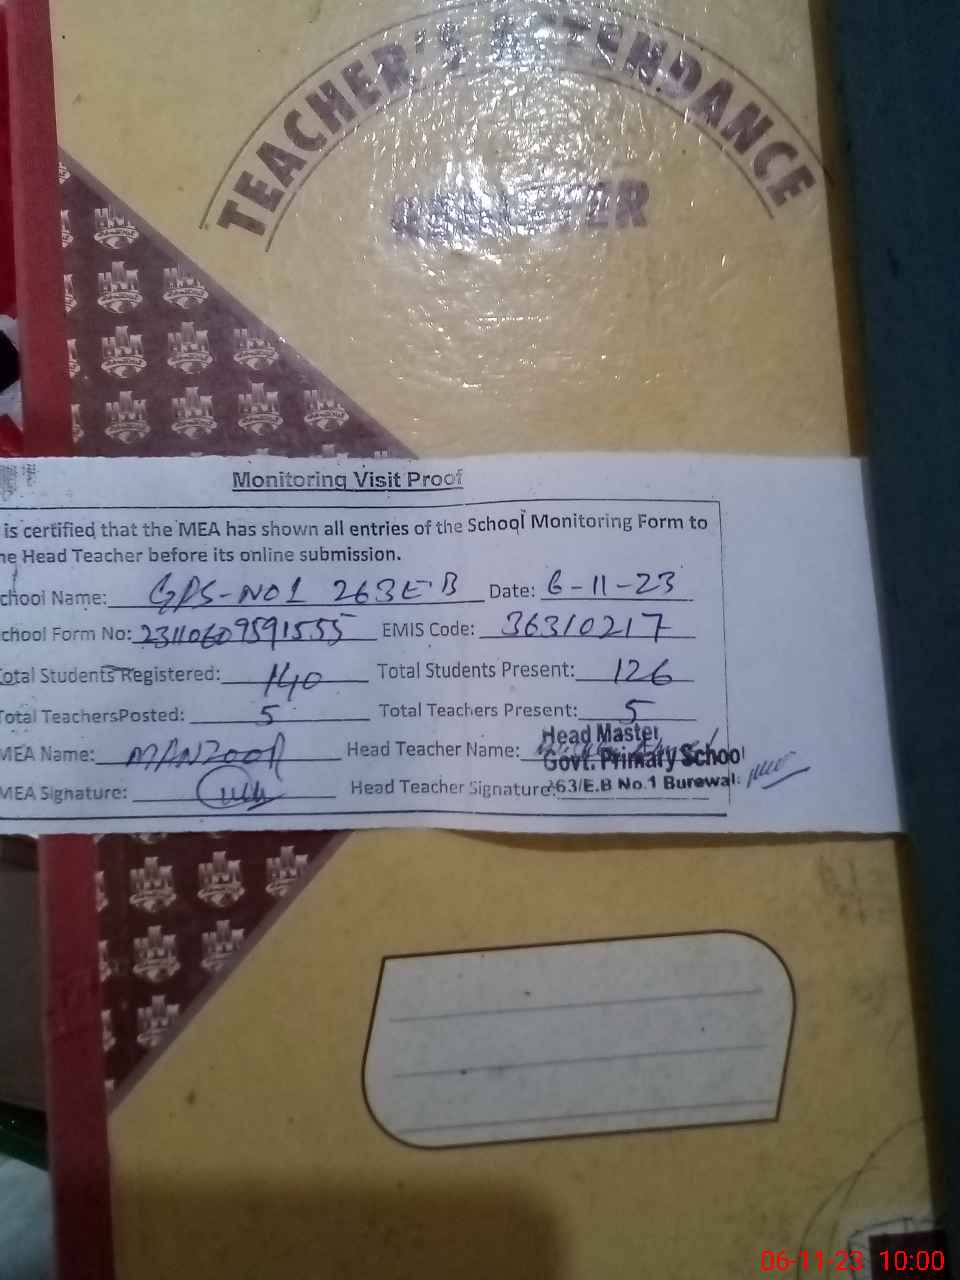 TEACHER'S ATTENDANCE
REGISTER
Monitoring Visit Proof
is certified that the MEA has shown all entries of the School Monitoring Form to
he Head Teacher before its online submission.
chool Name: GPS-NO1 263E.B Date: 6-11-23
chool Form No: 23110609591555 EMIS Code: 36310217
otal Students Registered: 140 Total Students Present: 126
Total TeachersPosted: 5 Total Teachers Present: 5
MEA Name: MANZOOR Head Teacher Name:
Head Master
Govt. Primary School
MEA Signature: Head Teacher Signature:
263/E.B No.1 Burewal
06-11-23 10:00